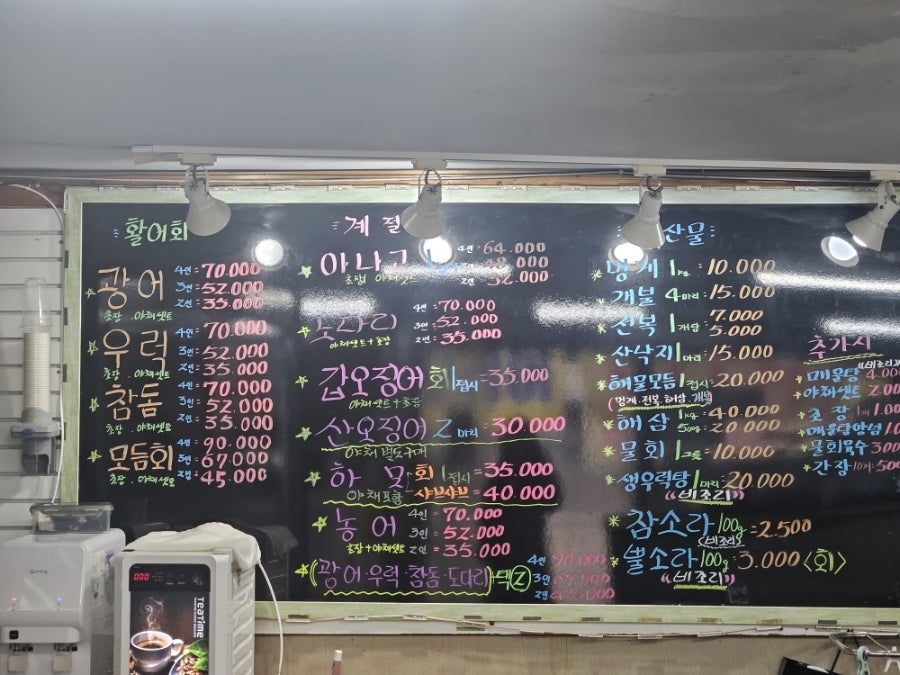 활어회
광어 4인=70.000
3인=52.000
2인=35.000
초장. 야채셋트
우럭 4인=70.000
3인=52.000
2인=35.000
초장. 야채셋트
참돔 4인=70.000
3인=52.000
2인=35.000
초장. 야채셋트
모듬회 4인=90.000
3인=67.000
2인=45.000
초장. 야채셋트
계절
아나고 4인=64.000
48.000
2인=32.000
초장 야채셋트
도다리 4인=70.000
3인=52.000
2인=35.000
야채셋트+초장
갑오징어 회 1접시=35.000
야채셋트+초장
산오징어 2마리=30.000
야채 별도
하모 회 1접시=35.000
야채포함 샤브샤브=40.000
농어 4인=70.000
3인=52.000
2인=35.000
초장+야채셋트
(광어·우럭·참돔·도다리)+택② 4인 90.000
3인 67.000
2인 45.000
산물
멍게 1kg=10.000
개불 4마리=15.000
전복 1개당 7.000
5.000
산낙지 1마리=15.000
해물모듬 1접시=20.000
(멍게.전복.해삼.개불)
해삼 1kg=40.000
500g=20.000
물회 1그릇=10.000
생우럭탕 1마리=20.000
"비조리"
참소라 100g=2.500
<비조리>
뿔소라 100g=3.000 <회>
"비조리"
추가시
매운탕 4.000
야채셋트 2.00
초장 1개 1.00
매운탕양념 1.00
물회육수 3.00
간장 10개=500
000
TEATIME